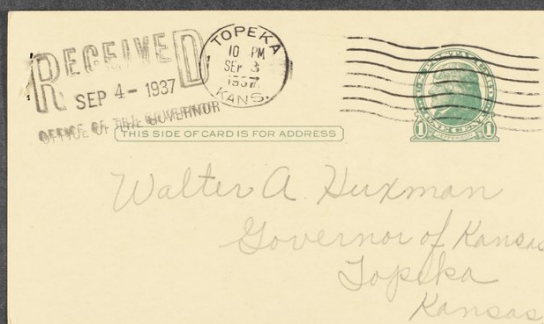 RECEIVED
SEP 4 - 1937
OFFICE OF THE GOVERNOR
TOPEKA
10 PM
SEP 3
1937
KANS.
THIS SIDE OF CARD IS FOR ADDRESS
1 1
Walter A. Huxman
Governor of Kansas
Topeka
Kansas